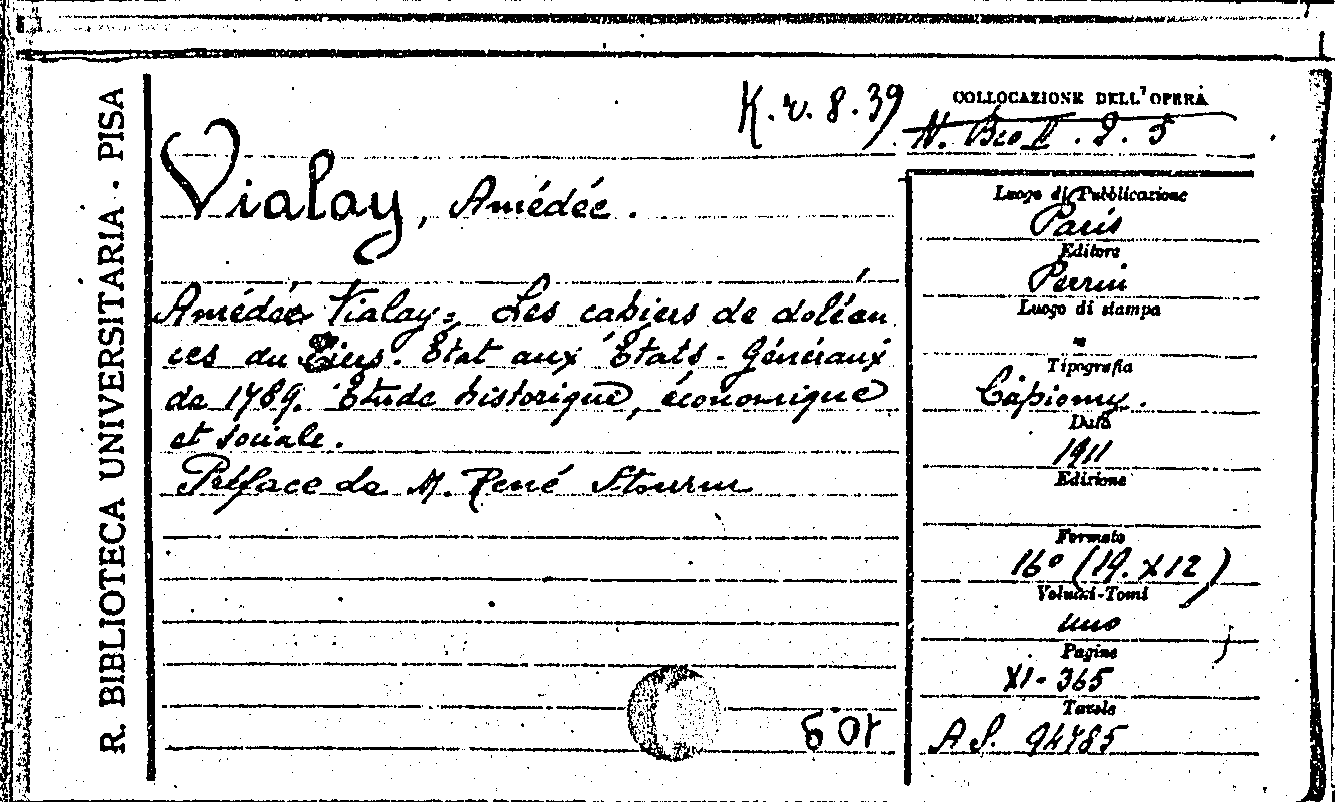 R. BIBLIOTECA UNIVERSITARIA · PISA
K.v.8.39
COLLOCAZIONE DELL'OPERA
N. Bco II. 2. 5
Vialay, Amédée.
Amédée Vialay, Les cahiers de doléan
ces du Tiers-État aux États-Généraux
de 1789. Étude historique, économique
et sociale.
Préface de M. René Stourm
Luogo di Pubblicazione
Paris
Editore
Perrin
Luogo di stampa
"
Tipografia
Capiomy.
Data
1911
Edizione
Formato
16° (19.x12)
Volumi-Tomi
uno
Pagine
XI-365
Tavole
A.S. 94785